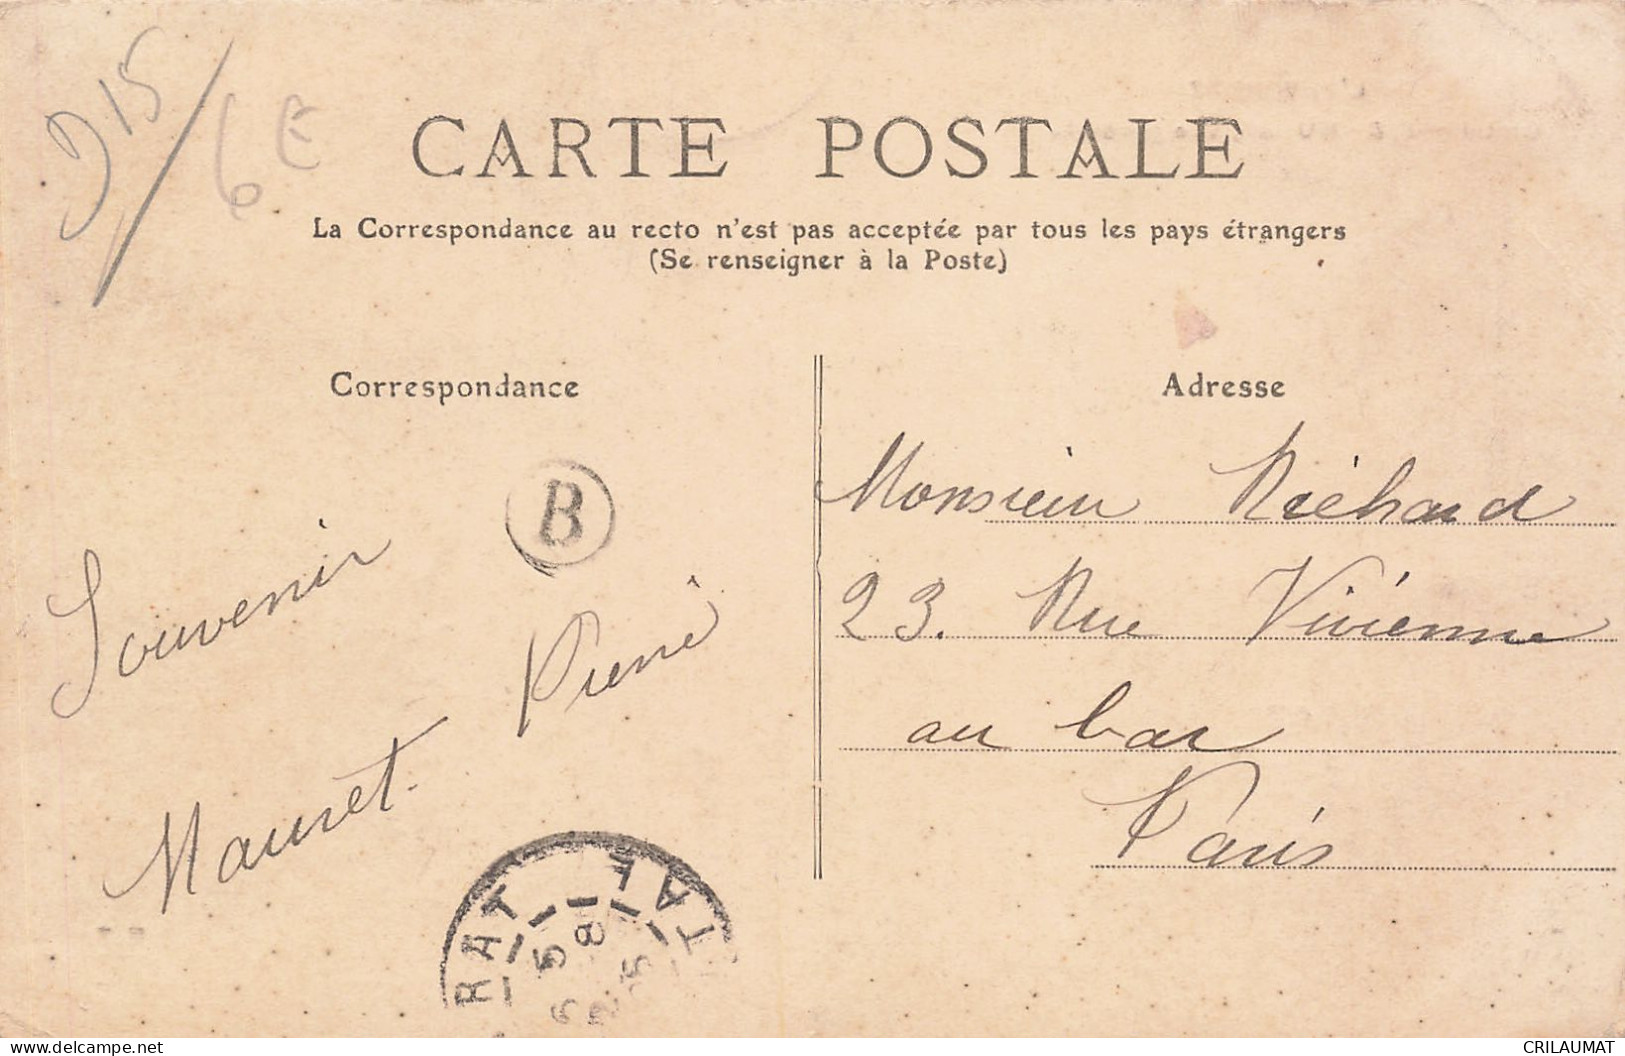 D15
6E
CARTE POSTALE
La Correspondance au recto n'est pas acceptée par tous les pays étrangers
(Se renseigner à la Poste)
Correspondance
B
Souvenir
Pierre
Mauret.
Adresse
Monsieur Richard
23. Rue Vivienne
au bar
Paris
www.delcampe.net
CRILAUMAT